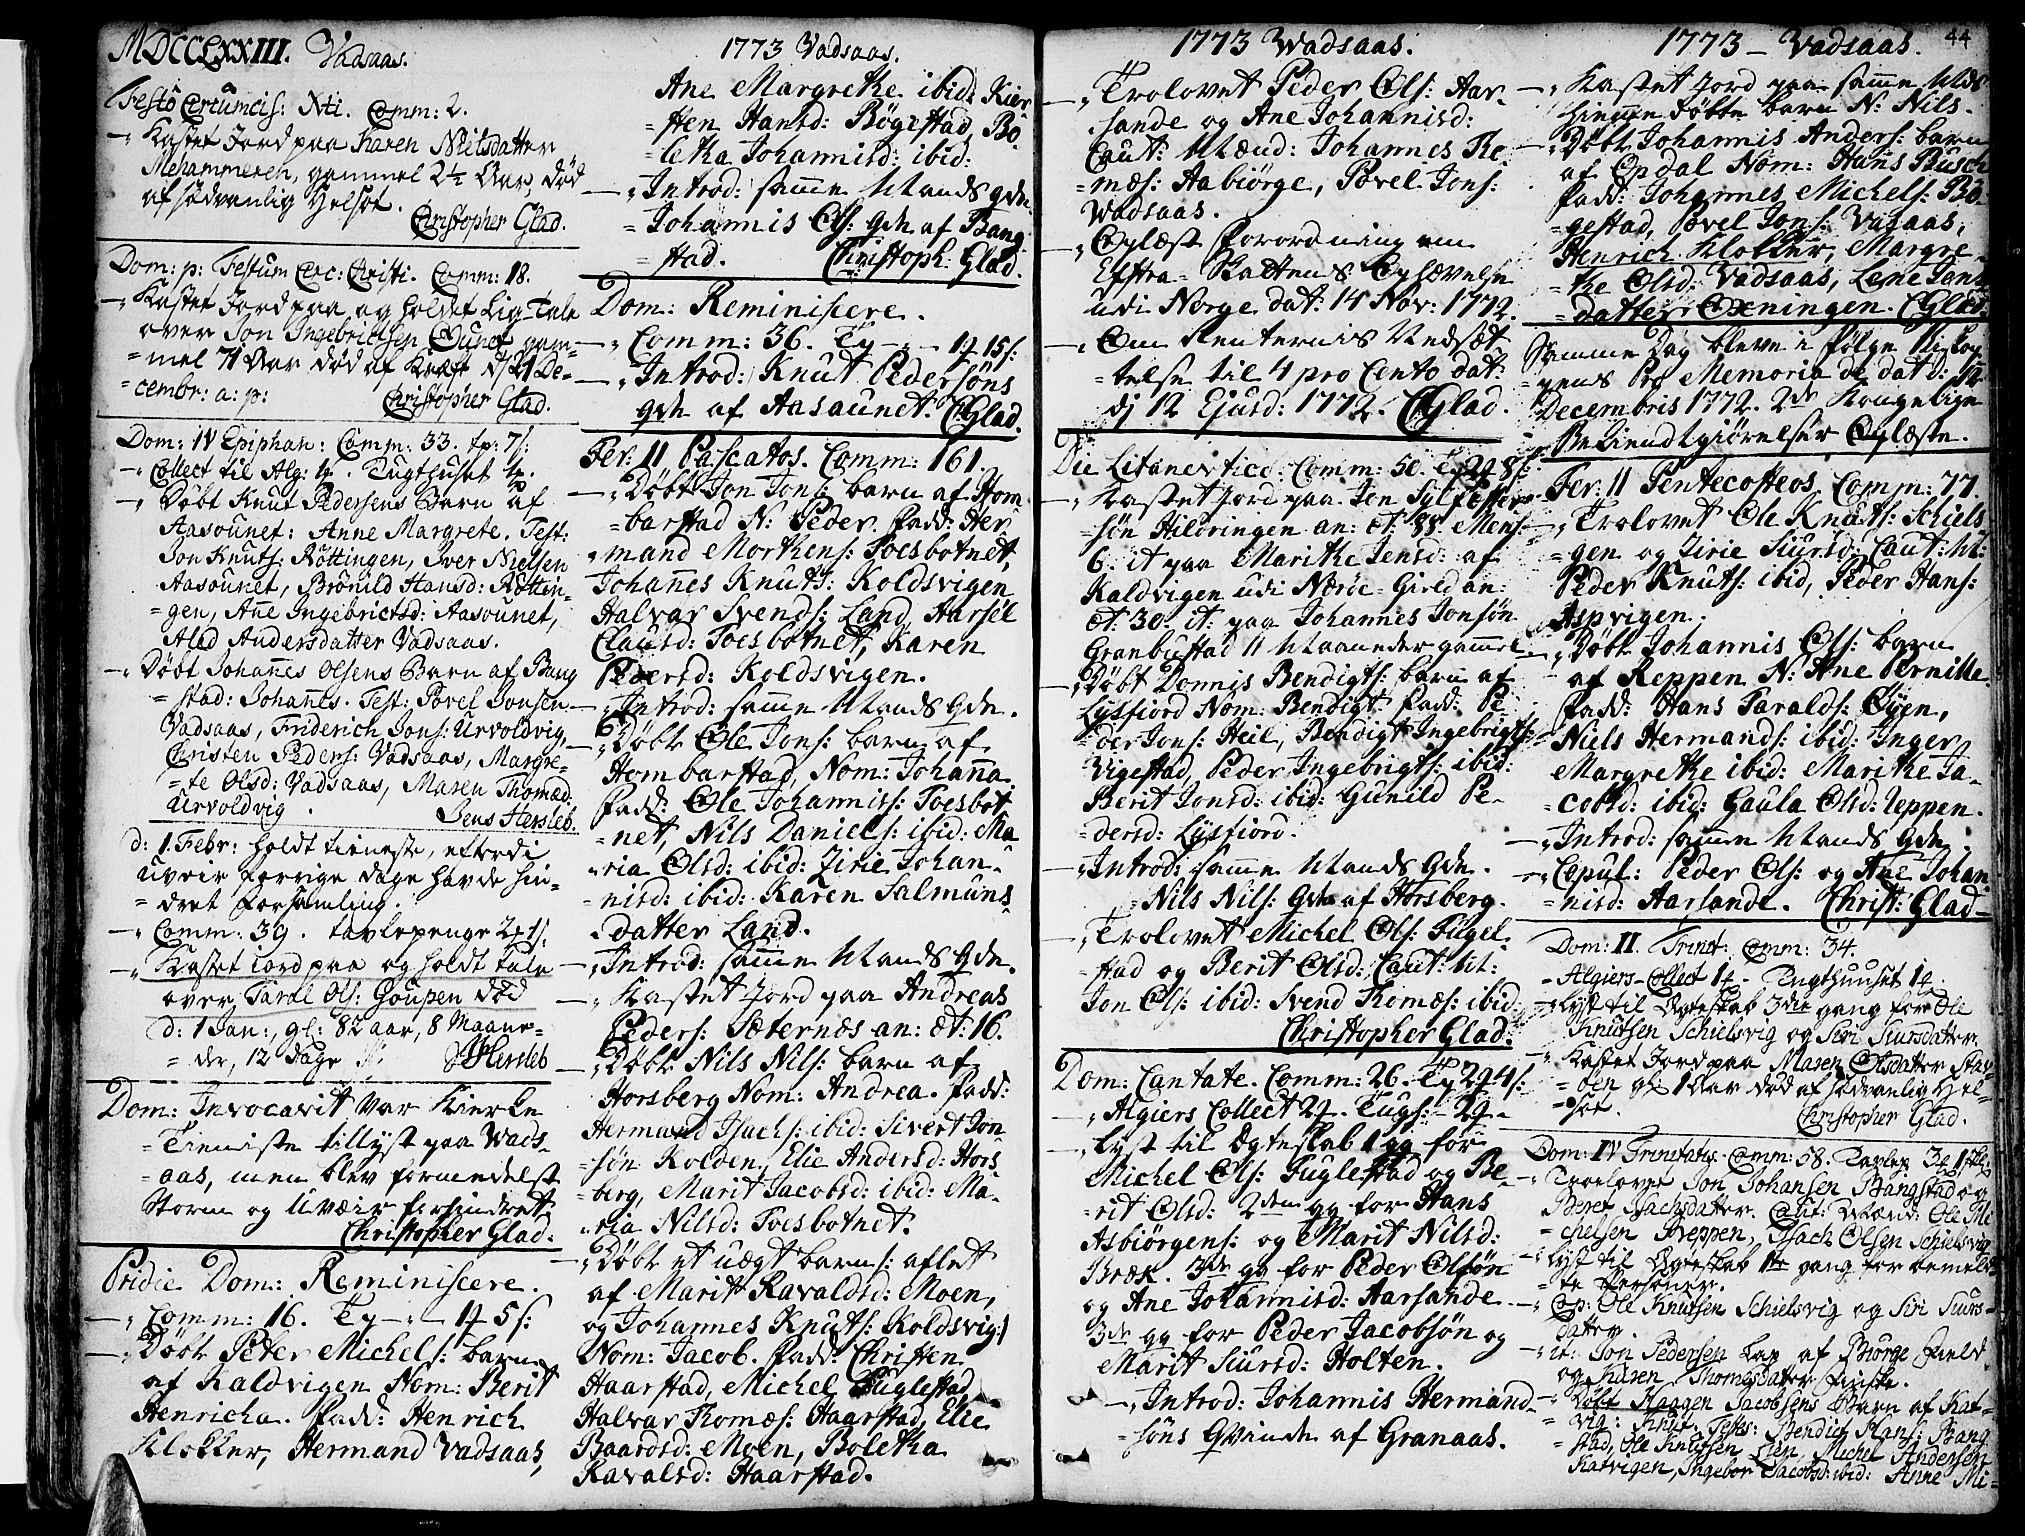 MDCCLXXIII. Vadsaas.
Festo Circumcis: Xti. Comm: 2.
Kastet Jord paa Karen Nielsdatter
Mehammeren, gammel 2½ Aar, død
af sædvanlig Helsot.
Christopher Glad.
Dom: p: Festum Circ: Christi. Comm: 18.
Kastet Jord paa og holdet Lig-Tale
over Jon Ingebrictsen Ounet gam-
=mel 71 Aar død af Kræft d: 21 De-
=cembr: a: p:
Christopher Glad.
Dom: IV Epiphan: Comm: 33. tp: 7 s:
Collect til Alg: Tugthuset
Døbt Knut Pedersens Barn af
Aasounet: Anne Margrete. Test:
Jon Knuts: Røttingen, Iver Nielsen
Aasounet, Brønild Hansd: Røttin-
=gen, Ane Ingebrictsd: Aasounet,
Alad Andersdatter Vadsaas.
Døbt Johannes Olsens Barn af Bang
=stad: Johannes. Test: Povel Jonsen
Vadsaas, Friderich Jons: Urvoldvig,
Christen Peders: Vadsaas, Margre-
=te Olsd: Vadsaas, Maren Thomæd:
Urvoldvig.
Jens Hersleb.
d: 1. Febr: holdt tieneste, efterdi
Uveir forrige dage havde hin-
=dret forsamling.
Comm: 39. tavlepenge
Kastet iord paa og holdt tale
over Taral Ols: Goupen død
d: 1 Jan:, gl: 82 aar, 8 Maane-
=der, 12 dage
JHersleb
Dom: Invocavit var Kierke
=Tieniste tillyst paa Vads-
=aas, men blev formedelst
Storm og Uveir forhindret.
Christopher Glad.
Pridie Dom: Reminiscere.
Comm: 16. Tp
Døbt Peter Michels: barn
af Kaldvigen Nom: Berit
Henricha. Fadd: Henrich
Klokker, Hermand Vadsaas,
1773 Vadsaas.
Ane Margrethe ibid: Kier
=sten Hansd: Bøgestad, Bo-
=letha Johannisd: ibid:
Introd: samme Mands qde.
Johannis Ols: qde af Bang
=stad. Christoph: Glad.
Dom: Reminiscere.
Comm: 36. Tp
Introd: Knut Pedersøns
qde af Aasaunet. CGlad.
Fer: II Pascatos. Comm: 161
Døbt Jon Jons: barn af Hom-
=barstad N: Peder. Fadd: Her
mand Morthens: Toesbotnet,
Johanes Knuts: Koldsvigen
Halvar Svends: Land, Aarsel
Clausd: Toesbotnet, Karen
Pedersd: Koldsvigen.
Introd: samme Mands qde.
Døbt Ole Jons: barn af
Hombarstad, Nom: Johanna.
Fadd: Ole Johannis: Toesbot
=net, Nils Daniels: ibid: Ma
ria Olsd: ibid: Zirie Johan-
=nisd: ibid: Karen Salmuns
datter Land.
Introd: samme Mands qde.
Kastet Jord paa Andreas
Peders: Sæternæs an: æt: 16.
Døbt Nils Nils: barn af
Horsberg Nom: Andrea. Fadd:
Hermand Isachs: ibid: Sivert Jon
=søn Kolden, Elie Andersd: Hors
=berg, Marit Jacobsd: ibid: Ma-
=ria Nilsd: Toesbotnet.
Døbt et uægt barn: aflet
af Marit Ravaldsd: Moen,
og Johannes Knuts: Koldsvig:
Nom: Jacob. Fadd: Christen
Haarstad, Michel Fuglestad,
Halvar Thomæs: Haarstad, Elie
Baardsd: Moen, Boletha
Ravalsd: Haarstad.
1773 Wadsaas.
Trolovet Peder Ols: Aar-
sande og Ane Johannisd:
Caut: Mænd: Johannes Tho
=mæs: Aabiørge, Povel Jons:
Wadsaas.
Oplæst forordning om
Exstra-Skattens Ophævelse
udi Norge dat: 14 Nov: 1772.
Om Renternis Nedsæt
=telse til 4 pro Cento dat:
dj 12 Ejusd: 1772. CGlad.
Comm: 50.
Kastet Jord paa Jon Sylfester
søn Hildringen an: æt: 88 Mens:
6. it paa Marithe Jensd: af
Kaldvigen udi Nærøe-Gield an:
æt: 30. it: paa Johannes Jonsøn
Granbustad 11 Maaneder gammel.
Døbt Donnis Bendigts: barn af
Lysfiord Nom: Bendigt. Fadd: Pe
=der Jons: Heil, Bendigt Ingebrigts:
Vigestad, Peder Ingebrigts: ibid:
Berit Jonsd: ibid: Gunild Pe-
=dersd: Lysfiord.
Introd: samme Mands qde.
=Nils Nils: qde af Horsberg.
Trolovet Michel Ols: Fugel-
=stad og Berit Olsd: Caut: M:
Jon Ols: ibid: Svend Thomæs: ibid:
Christopher Glad.
Dom: Cantate. Comm: 26. Tp
Algiers Collect Tugt:
Lyst til Ægteskab 1 gg for
Michel Ols: Fuglestad og Be-
=rit Olsd: 2den gg for Hans
Asbiørgens: og Marit Nilsd:
Bræk. 3de gg for Peder Olsøn
og Ane Johannisd: Aarsande
3de gg for Peder Jacobsøn og
Marit Siursd: Holten.
Introd: Johannis Hermand-
=søns Qvinde af Granaas.
1773 – Vadsaas. 44
Kastet Jord paa samme Mds
hiemmedøbte barn N: Nils.
Døbt Johannis Anders: barn
af Opdal Nom: Hans Busch
Fadd: Johannes Michels: Bø-
=gestad, Povel Jons: Vadsaas,
Henrich Klokker, Margre-
=the Olsd: Vadsaas, Lene Jans
=datter Oxeningen. CGlad.
Samme Dag bleve i følge Biskop
=pens Pro Memoria de dat d: 12
Decembris 1772. 2de Kongelige
Bekiendtgiørelser Oplæste.
Fer: II Pentecosteos. Comm: 77.
Trolovet Ole Knuts: Schiels
=gen og Zirie Siursd: Caut: M:
Peder Knuts: ibid, Peder Hans:
Aspvigen.
Døbt Johannis Ols: barn
af Reppen N: Ane Pernille.
Fadd: Hans Taralds: Øyen,
Niels Hermands: ibid: Inger
Margrethe ibid: Marithe Ja-
=cobsd: ibid: Gaula Olsd: Reppen.
Introd: samme Mands qde.
Copul: Peder Ols: og Ane Johan-
=nisd: Aarsande. Christ: Glad
Dom: II. Trinit: Comm: 34.
Algiers-Collect Tugthuuset
Lyst til Ægteskab 3die gang for Ole
Knutsen Schielsvig og Siri Siursdatter.
Kastet Jord paa Maren Olsdatter
gl: 1 Aar død af sædvanlig Hel-
=sot.
Christopher Glad.
Dom: IV Trinitatis. Comm: 58. Tavlep
Troelovet Jon Johansen Bangstad og
Beret Isachsdatter. Caut: Mænd: Ole Mi
chelsen Reppen, Isach Olsen Schielsvig
Lyst til Ægteskab 1te gang for bemeld
=te Personer.
Cop: Ole Knutsen Schielsvig og Siri Siurs-
datter.
it: Jon Pedersen Lap af Biørge Field
og Karen Thomasdatter
Døbt Haagen Jacobsens Barn af Kat-
vig: Knut. Testes: Bendict Hans: Bang
stad, Ole Knutsen Lien, Michel Andersen
Katvigen, Ingebor Jacobsd: ibid: Anne Mi-